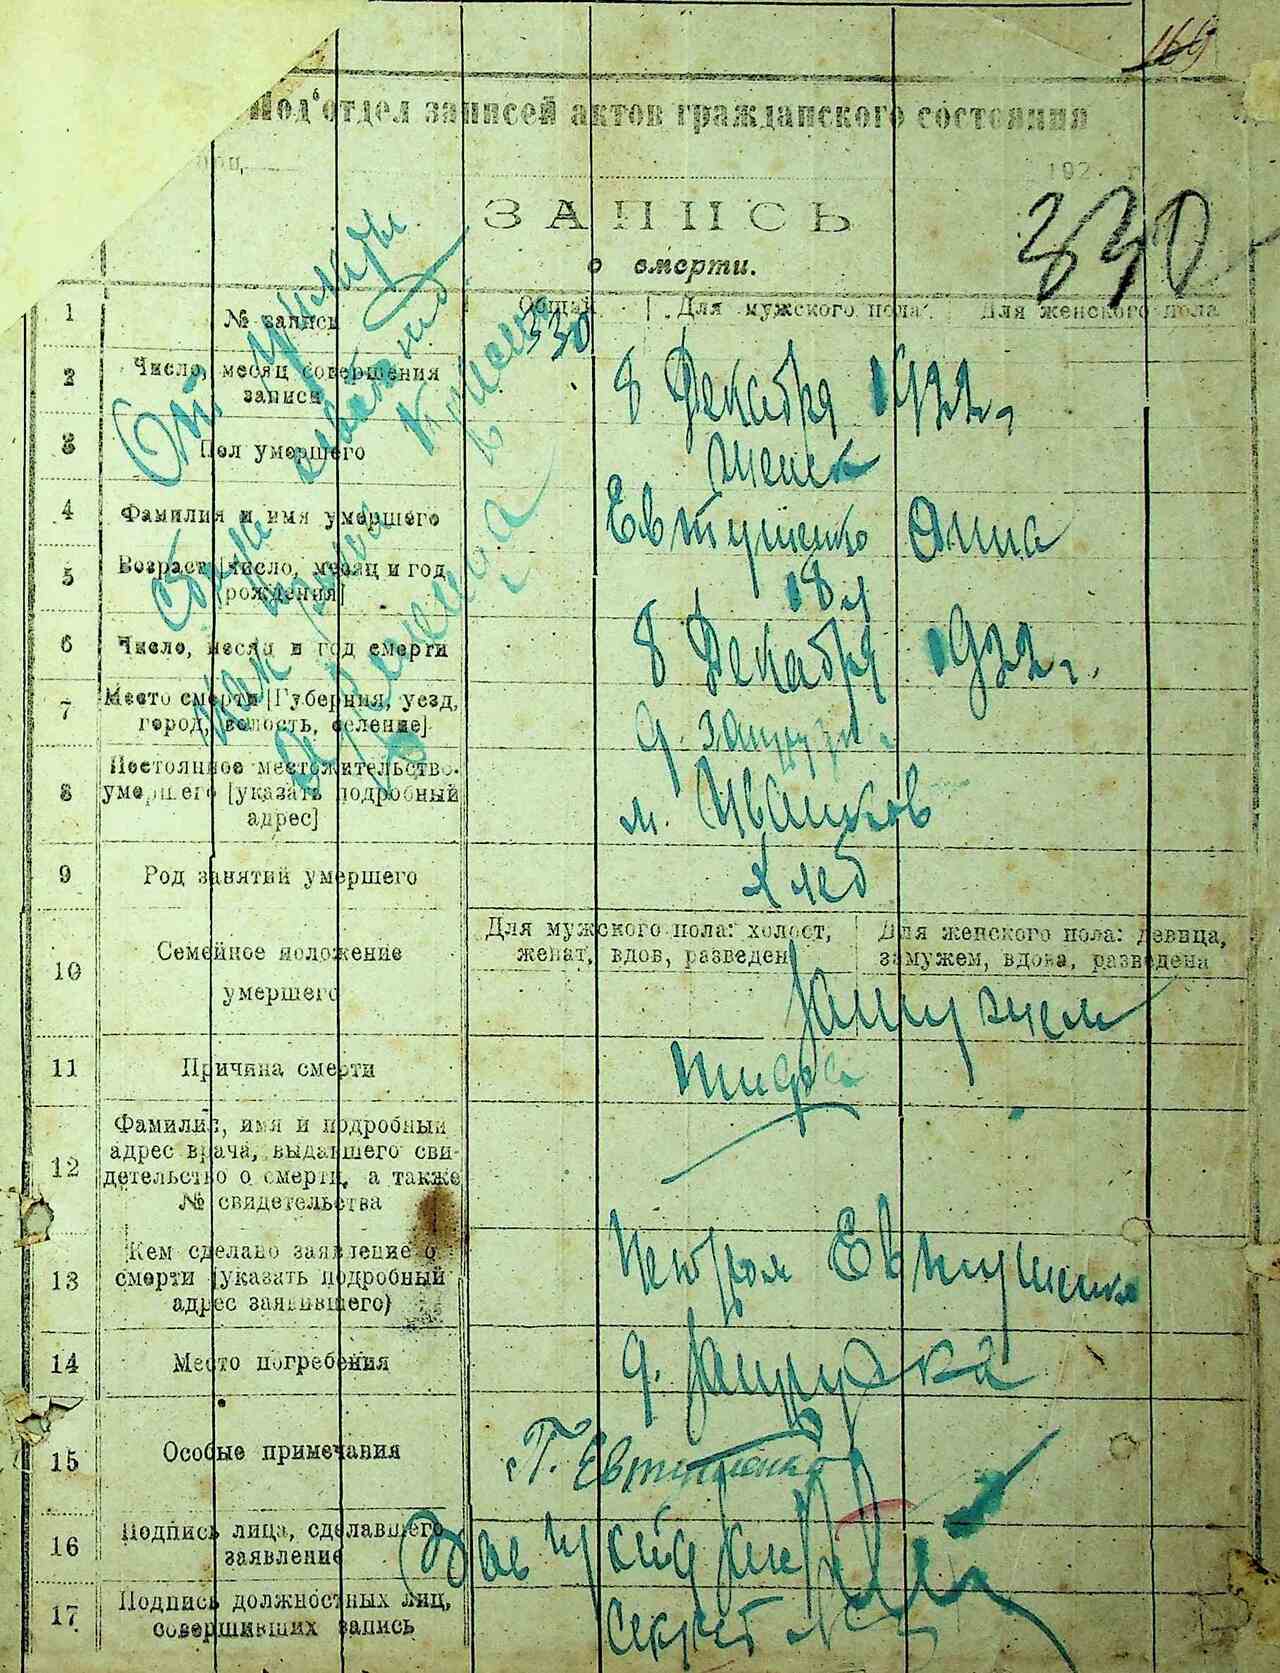 169
Под'отдел записей актов гражданского состояния
192 г.
ЗАПИСЬ
о смерти.
330
1 № записи Общий Для мужского пола Для женского пола
330
2 Число, месяц совершения записи 8 Декабря 1922 г.
3 Пол умершего Женск
4 Фамилия и имя умершего Евтушенко Анна
5 Возраст [число, месяц и год рождения] 18 л
6 Число, месяц и год смерти 8 Декабря 1922 г.
7 Место смерти [Губерния, уезд, город, волость, селение] д.
8 Постоянное местожительство умершего [указать подробный адрес] м. Ивашков
9 Род занятий умершего Хлеб
10 Семейное положение умершего
Для мужского пола: холост, женат, вдов, разведен
Для женского пола: девица, замужем, вдова, разведена
Замужем
11 Причина смерти тифа
12 Фамилия, имя и подробный адрес врача, выдавшего свидетельство о смерти, а также № свидетельства
13 Кем сделано заявление о смерти [указать подробный адрес заявившего) Петром Евтушенко
14 Место погребения д.
15 Особые примечания П. Евтушенко
16 Подпись лица, сделавшего заявление
17 Подпись должностных лиц, совершивших запись Секрет